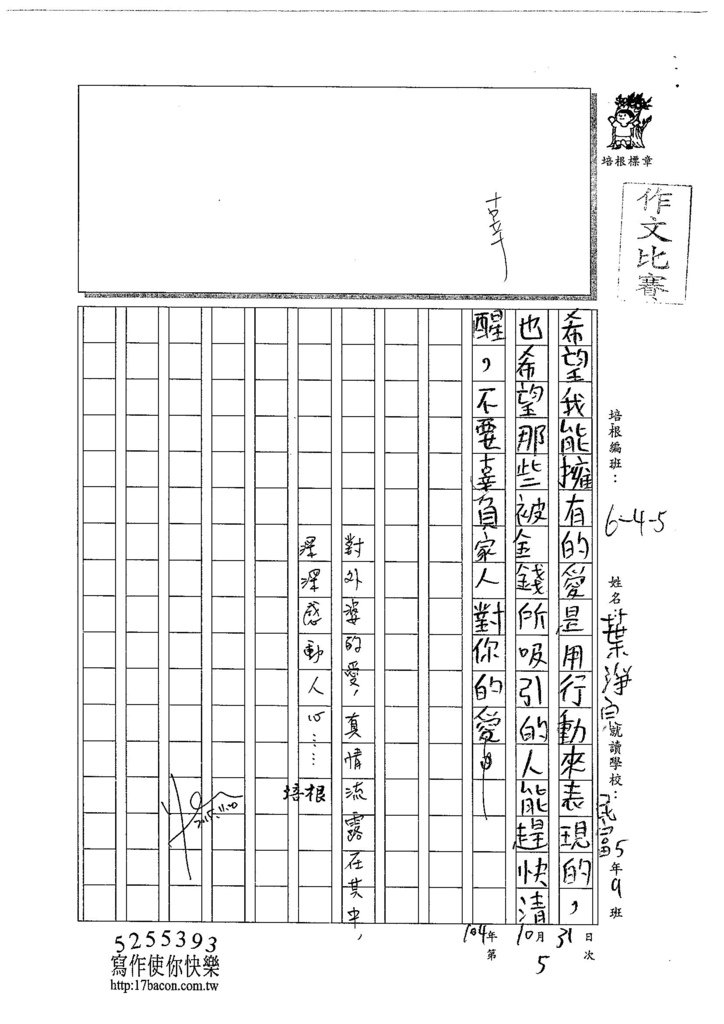 培根標章
作文比賽
辜
培根編班：6-4-5 姓名：葉淨 就讀學校：民富5年9班
104年10月31日
第5次
希望我能擁有的愛是用行動來表現的，
也希望那些被金錢所吸引的人能趕快清
醒，不要辜負家人對你的愛
對外婆的愛，真情流露在其中，
深深感動人心……
培根
2015.11.20
5255393
寫作使你快樂
http:17bacon.com.tw